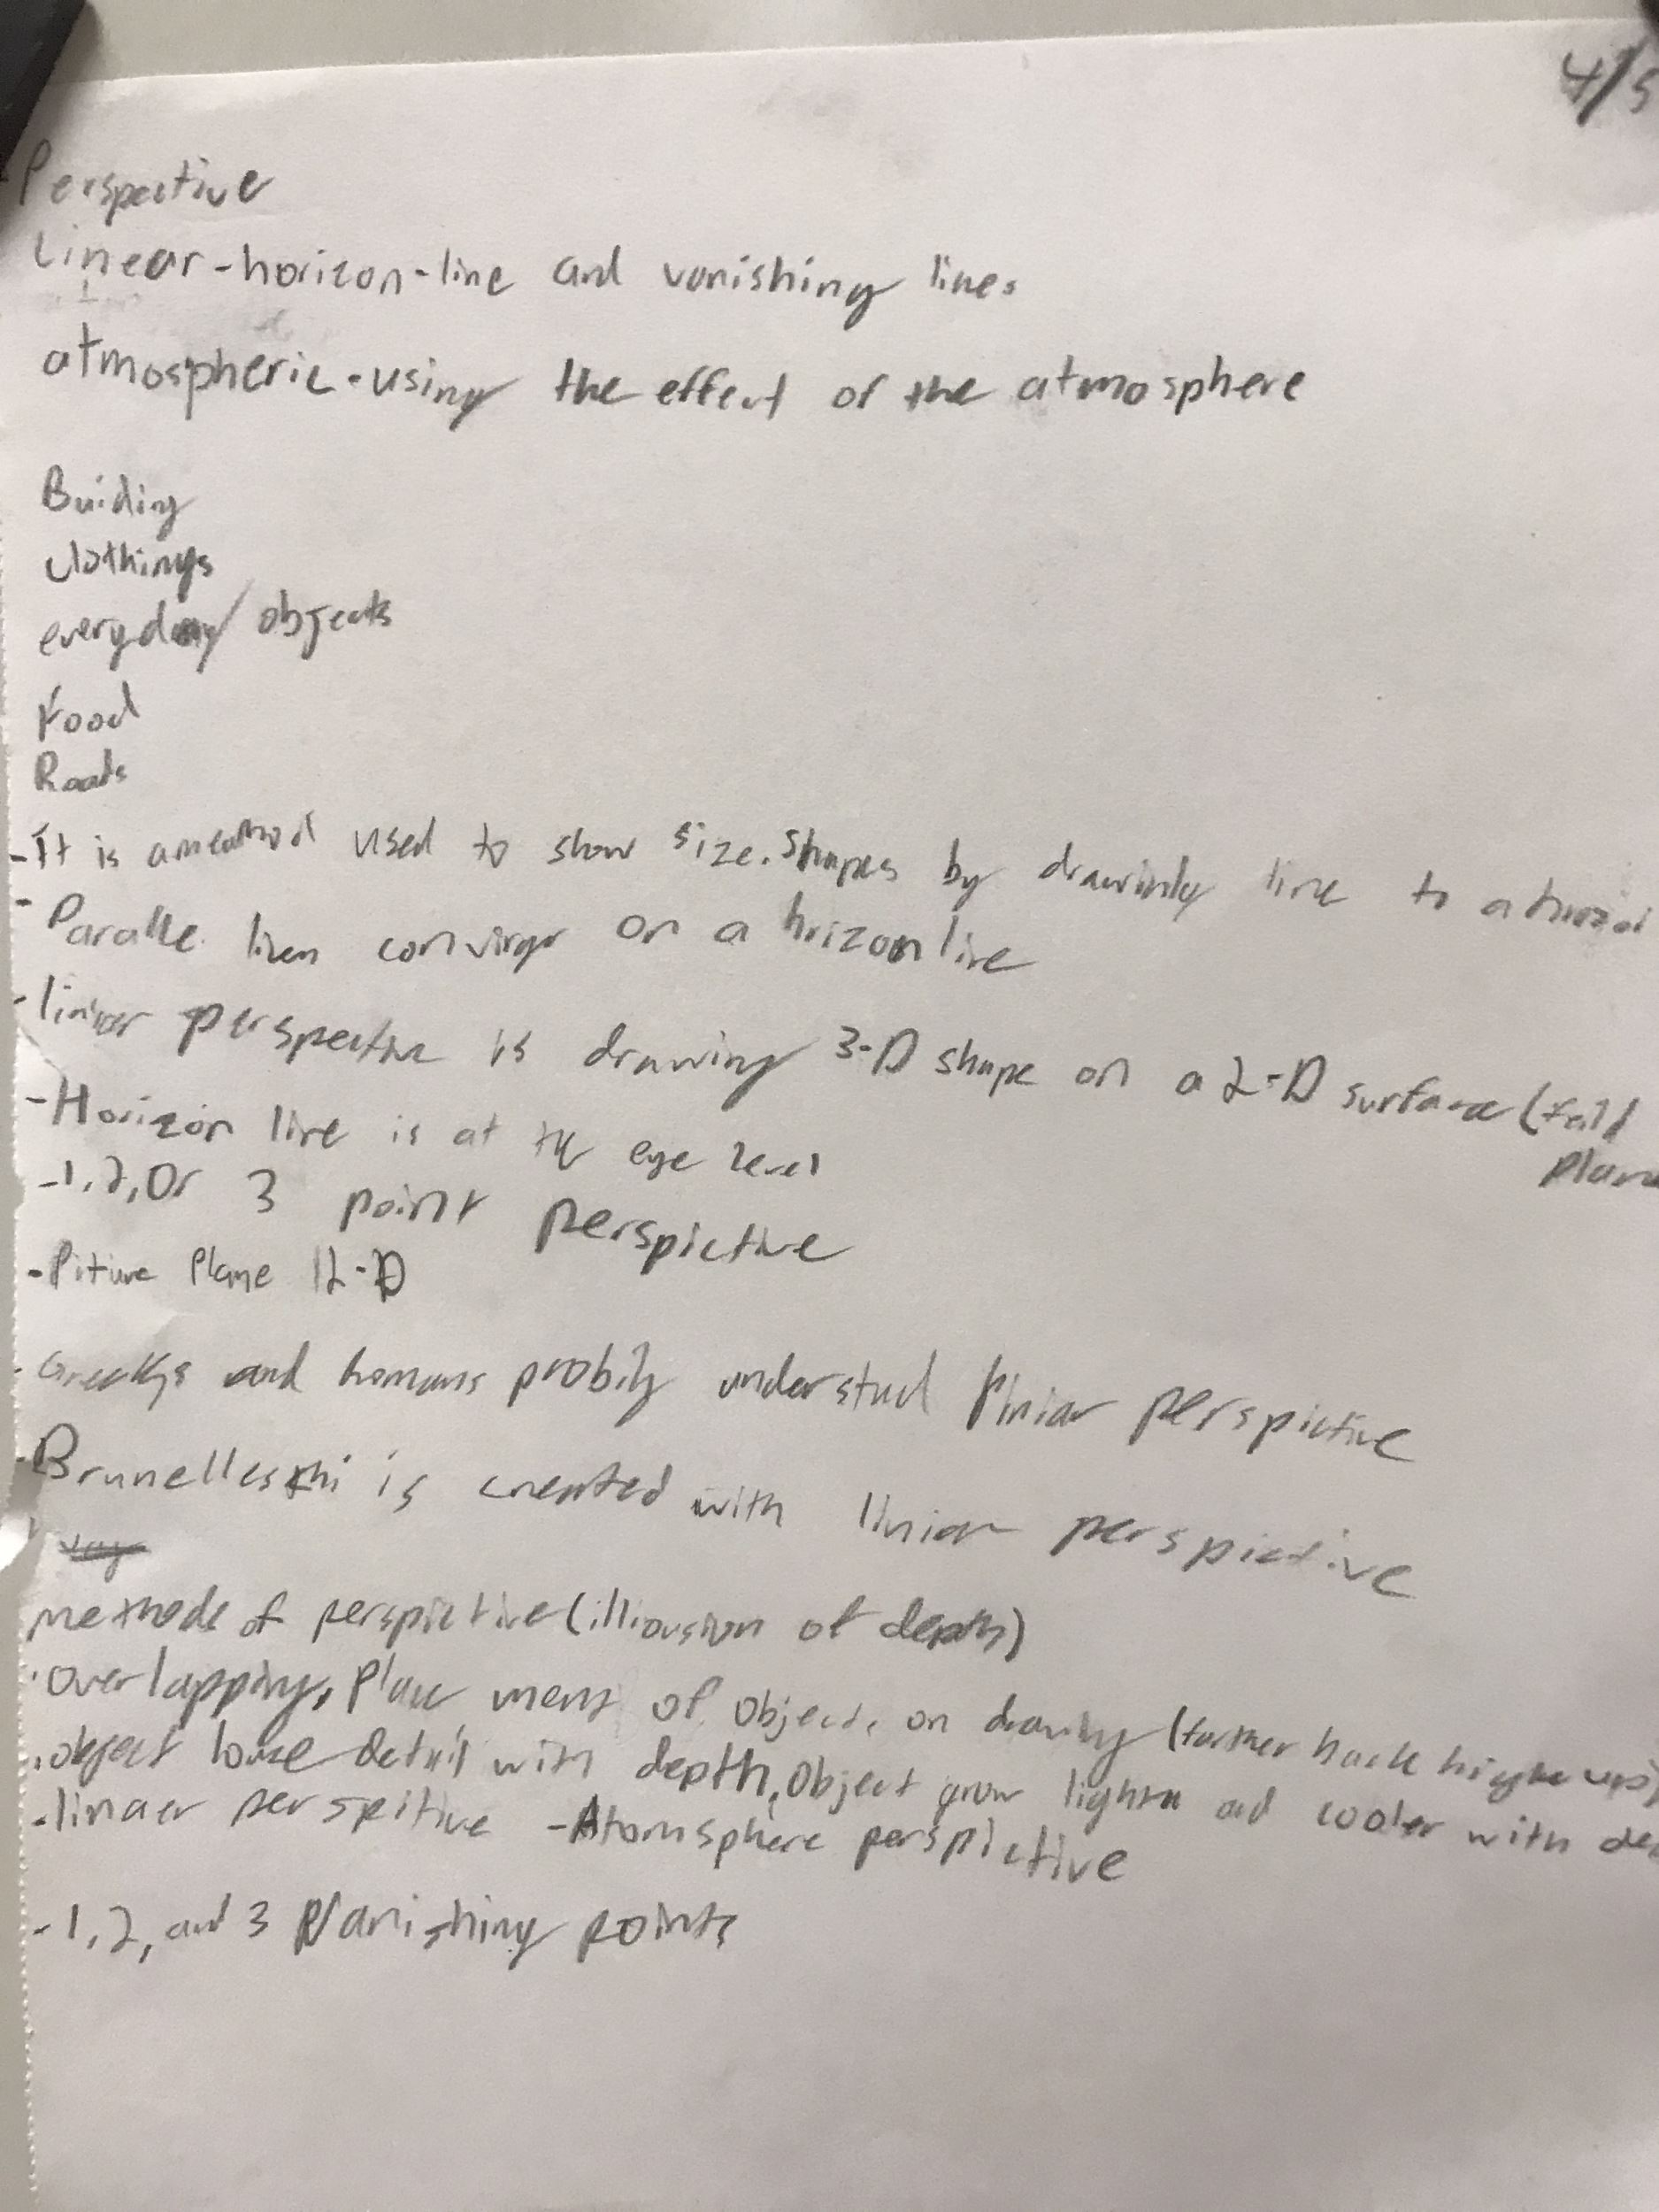 4/5
Perspective
Linear-horizon-line and vanishing lines
atmospheric-using the effect of the atmosphere
Buiding
clothings
everyday objects
Food
Roads
-It is a used to show size. shapes by line to a
-Paralle lines on a hrizon line
-liniar perspective is drawing 3-D shape on a 2-D surface (
-Horizon line is at the eye level
-1,2,Or 3 point perspictive
-Piture Plane 2-D
-Greeks and probily liniar perspictive
-Brunelleschi is creented with liniar perspictive
methods of perspictive (illiousion of depth)
·Overlapping, Place ment of Objects on drawing (farther back higher ups)
·object louse detail with depth, Object grow lighter ad cooler with
-linaer perspitive -Atomsphere perspictive
-1,2, and 3 Vanishing points